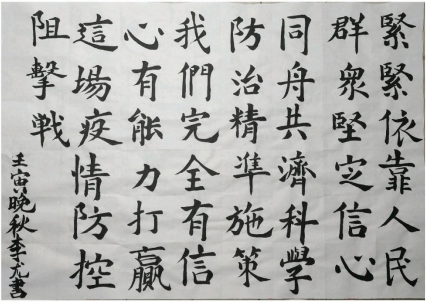 緊緊依靠人民
群衆堅定信心
同舟共濟科學
防治精準施策
我們完全有信
心有能力打贏
這場疫情防控
阻擊戰
壬寅晚秋李亢書